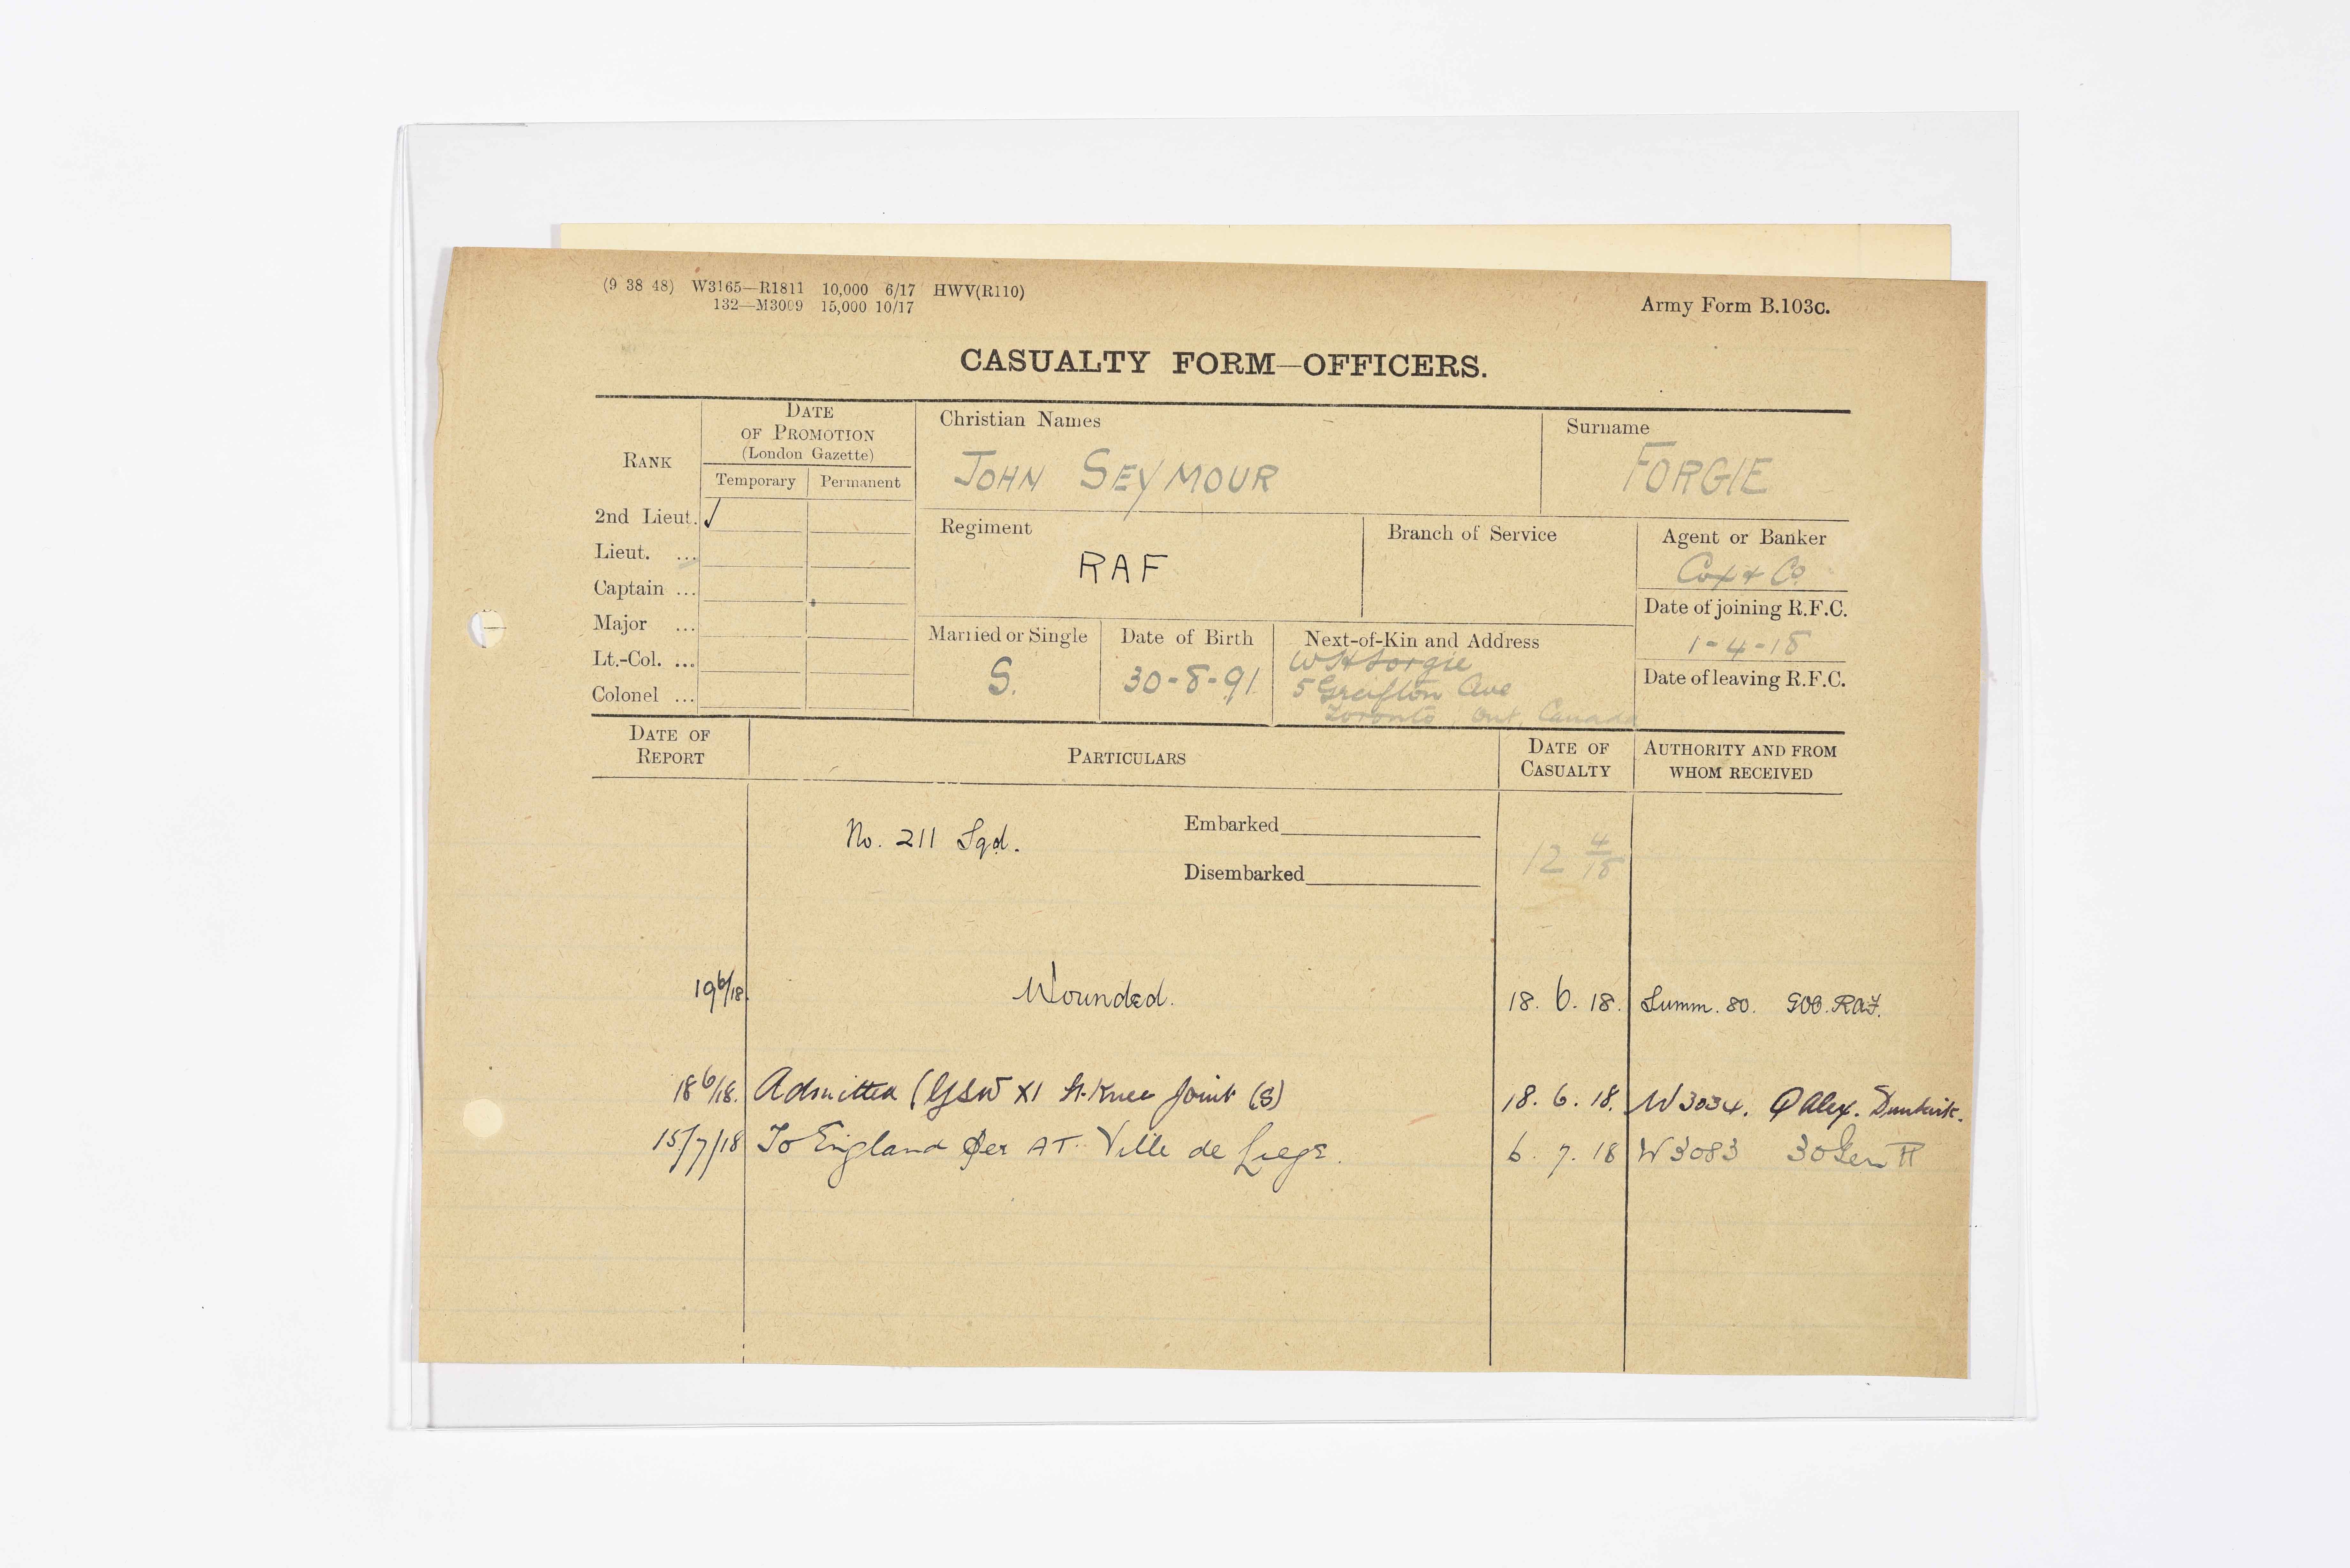 (9 38 48) W3165—R1811 10,000 6/17 HWV(R110)
132—M3009 15,000 10/17
Army Form B.103c.
CASUALTY FORM—OFFICERS.
RANK
DATE OF PROMOTION (London Gazette)
Temporary Permanent
2nd Lieut. ✓
Lieut. ...
Captain ...
Major ...
Lt.-Col. ...
Colonel ...
Christian Names
JOHN SEYMOUR
Surname
FORGIE
Regiment
RAF
Branch of Service
Agent or Banker
Cox & Co.
Date of joining R.F.C.
1-4-18
Date of leaving R.F.C.
Married or Single
S.
Date of Birth
30-8-91
Next-of-Kin and Address
W H Forgie
5 Ave
Toronto, Ont, Canada
DATE OF REPORT
PARTICULARS
DATE OF CASUALTY
AUTHORITY AND FROM WHOM RECEIVED
No. 211 Sqd.
Embarked
Disembarked
12 4/18
19 6/18 Wounded. 18. 6. 18. Summ. 80. GOC. RAF.
18 6/18. Admitted (GSW X1 Knee Joint (S) 18. 6. 18. W3034. Q Alex. Dunkirk.
15/7/18 To England per AT. Ville de Liege. 6. 7. 18 W3083 30 Gen H